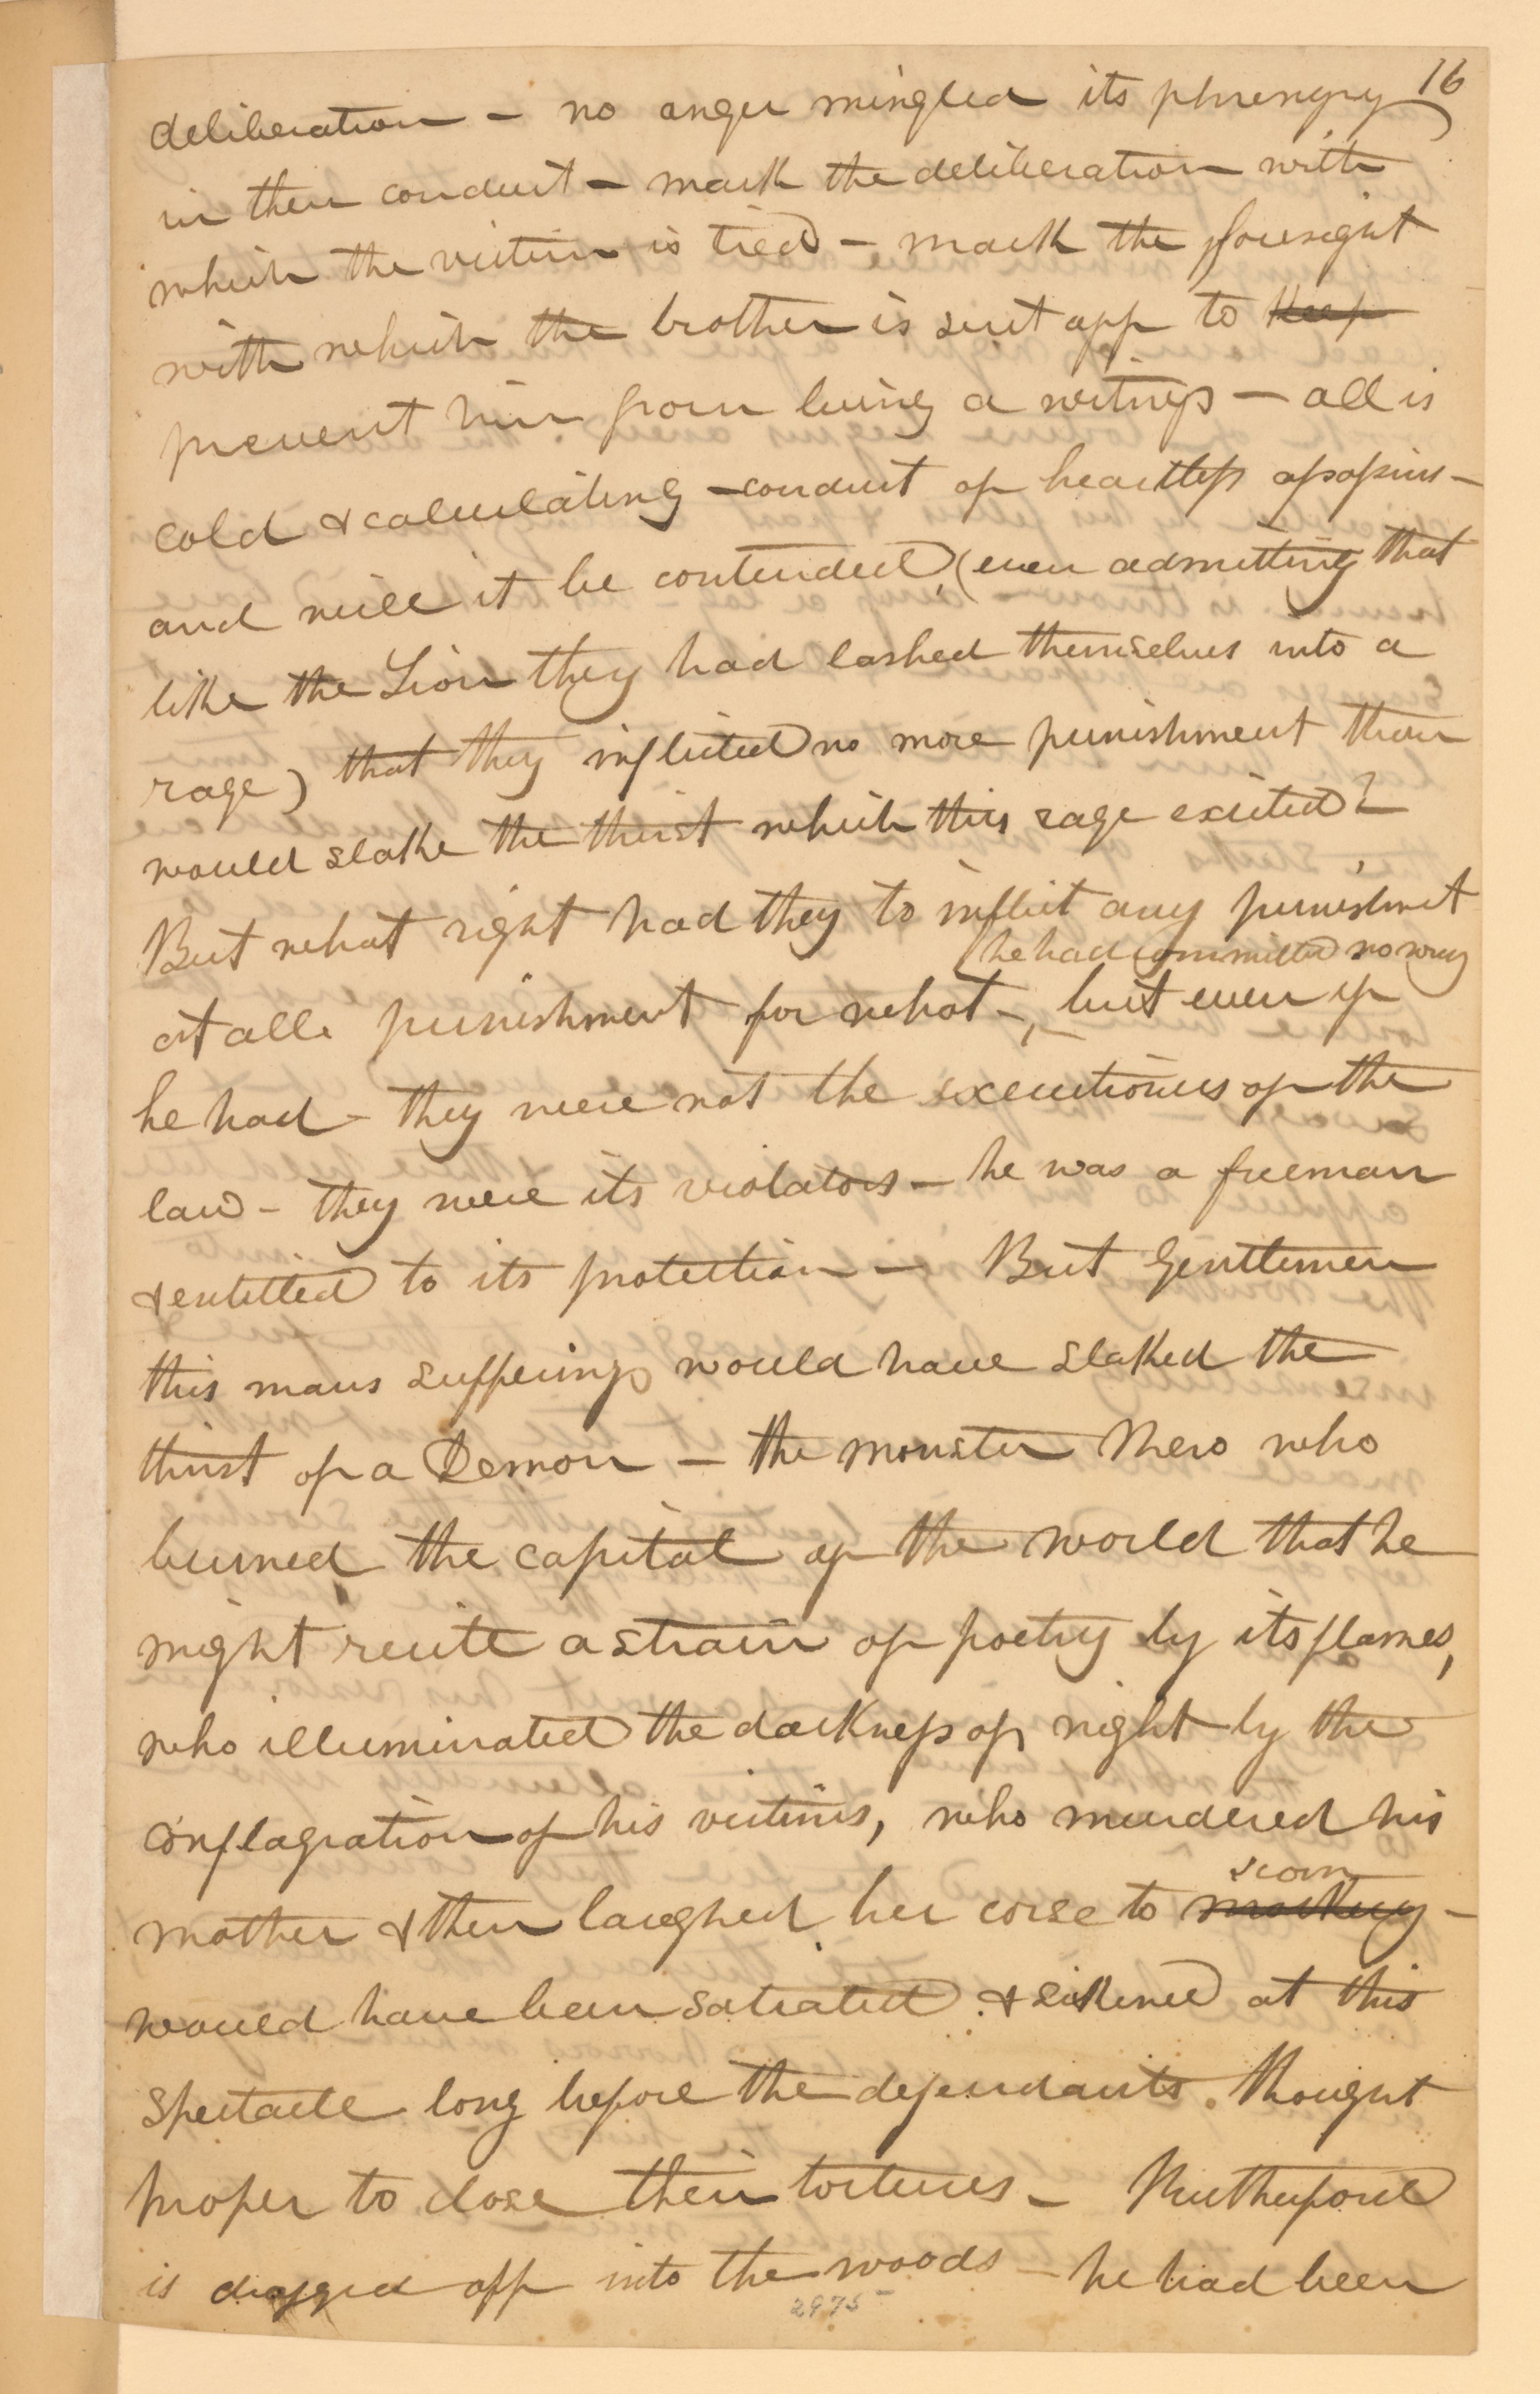 16
deliberation - no anger mingled its phrenzy
in their conduct - mark the deliberation with
which the victim is tied - mark the foresight
with which the brother is sent off to keep
prevent him from being a witness - all is
cold & calculating - conduct of heartless assassins -
and will it be contended (even admitting that
like the Lion they had lashed themselves into a
rage) that they inflicted no more punishment than
would slake the thirst which this rage excited?
But what right had they to inflict any punishmet
he had committed no wrong
at all. punishment for what -, but even if
he had - they were not the executioners of the
law - they were its violators - he was a freeman
& entitled to its protection - But Gentlemen
this mans sufferings would have slaked the
thirst of a Demon - the monster Nero who
burned the capital of the world that he
might recite a strain of poetry by its flames,
who illuminated the darkness of night by the
conflagration of his victims, who murdered his
scorn
mother & then laughed her corse to mockery -
would have been satiated & sickened at this
spectacle long before the defendants thought
proper to close their tortures - Rutherford
is dragged off into the woods - he had been
2975